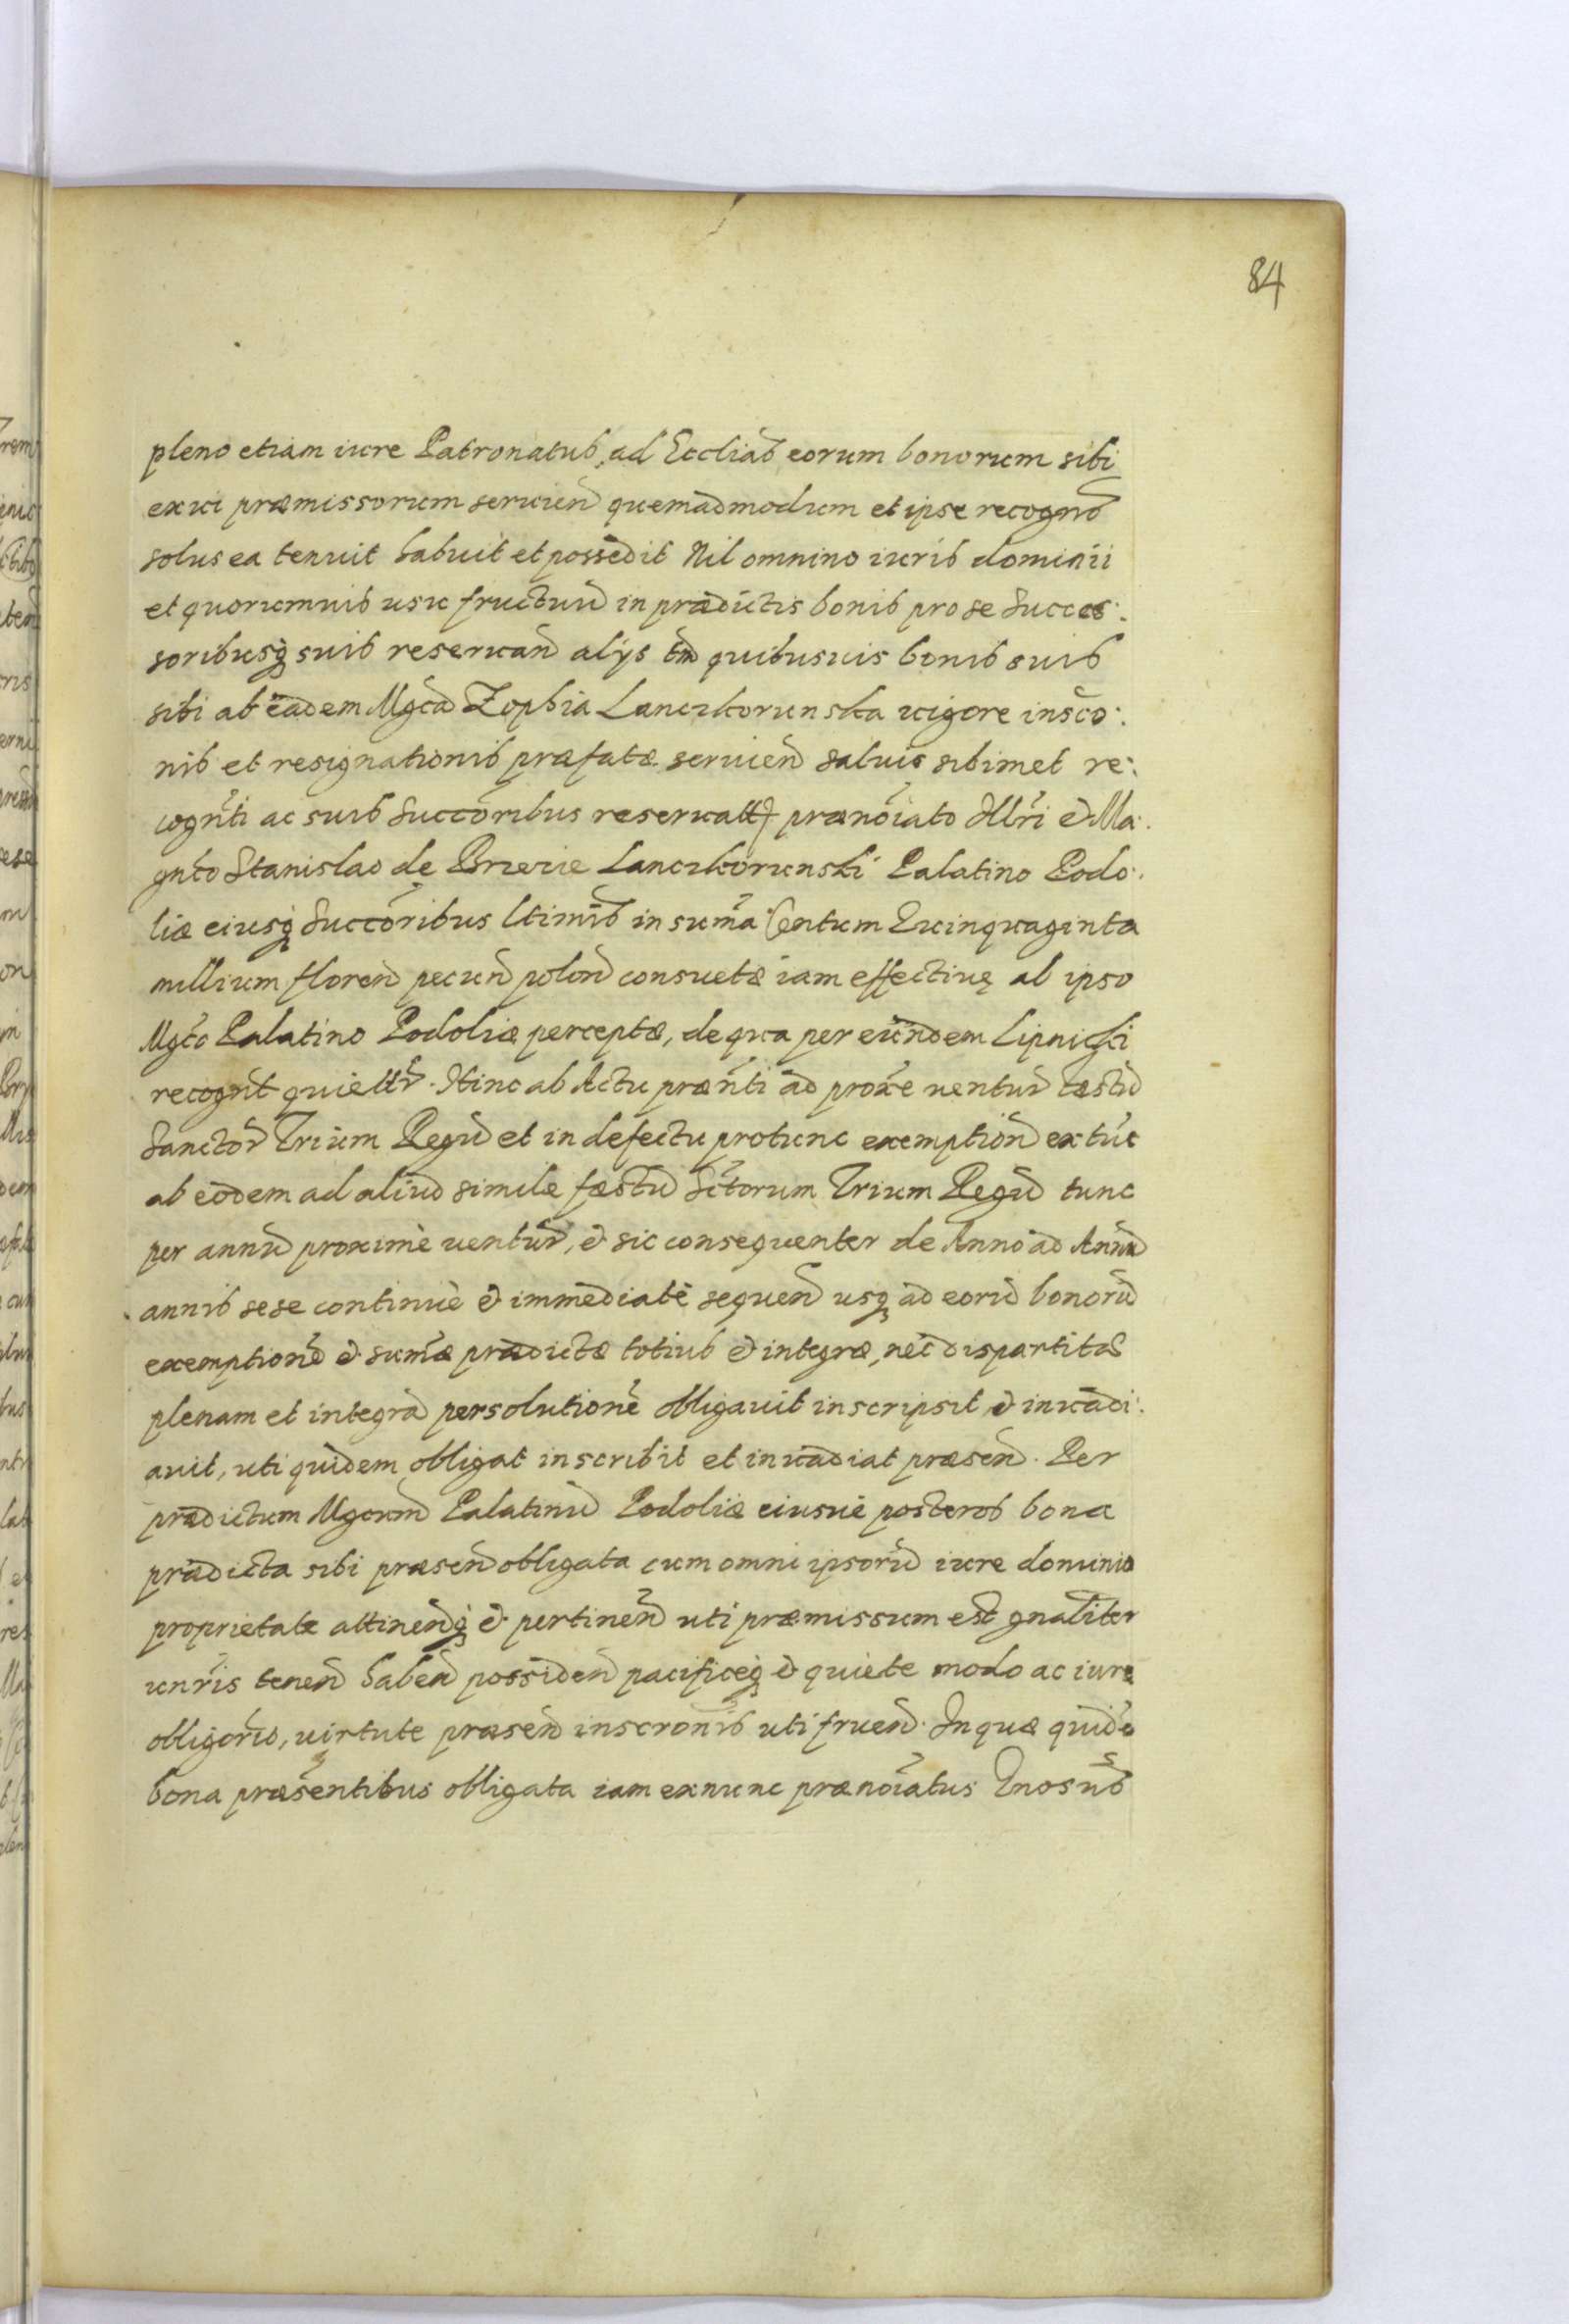 84
pleno etiam iure Patronatus, ad Eccliās eorum bonorum sibi
ex ui præmissorum seruien̄ quemadmodum et ipse recogn̄s
solus ea tenuit habuit et possedit Nil omnino iuris dominii
et quoriumuis usu fructuū in prædictis bonis pro se Succes:
soribusq suis reseruan̄ alijs tn̄ quibusuis bonis suis
sibi ab eadem Mgcā Zophia Lanczkorunska uigore inscō:
nis et resignationis præfatæ seruien̄ saluis sibimet re:
cogn̄ti ac suis Succōribus reseruatt prænōiato Illri & Ma:
gnco Stanislao de Brzezie Lanczkorunski Palatino Podo:
liæ eiusq Succōribus ltimīs in sum̄a Centum Quinquaginta
millium floren̄ pecun̄ polon̄ consuetæ iam effectiuę ab ipso
Mgcō Palatino Podoliæ perceptæ, de qua per eundem Lipnicki
recogn̄t quiettr̄. Hinc ab Actu præn̄ti ad prox̄e uentur̄ fæstū
Sanctor̄ Trium Regū et in defectu protunc exemption̄ ex tūc
ab eodem ad aliud simile fæstū Sc̄torum Trium Regū tunc
per annū proximè uentur̄, & sic consequenter de Anno ad Annū
annis sese continuè & immediatè sequen̄ usq ad eorū bonorū
exemptionē & sum̄æ prædictæ totius & integræ, nec̄ dispartitæ
plenam et integrā persolutionē obligauit inscripsit & inuadi:
auit, uti quidem obligat inscribit et inuadiat præsen̄. Per
prædictum Mgcum̄ Palatinū Podoliæ eiusuè posteros bona
prædicta sibi præsen̄ obligata cum omni ipsorū iure dominio
proprietate attinen̄q & pertinen̄ uti præmissum est gnāliter
unr̄is tenen̄ haben̄ possiden̄ pacificeq & quiete modo ac iure
obligōrio, uirtute præsen̄ inscrōnis uti fruen̄. In quæ quidē
bona præsentibus obligata iam exnunc prænōiatus Gnosus